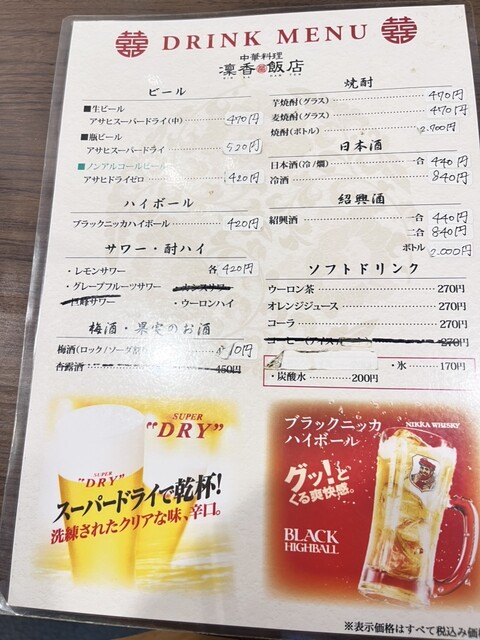 囍 DRINK MENU 囍
中華料理
凜香飯店
ビール
■生ビール
アサヒスーパードライ(中) 470円
■瓶ビール
アサヒスーパードライ 520円
■ノンアルコールビール
アサヒドライゼロ 420円
ハイボール
ブラックニッカハイボール 420円
サワー・酎ハイ
・レモンサワー 各420円
・グレープフルーツサワー
・巨峰サワー ・ウーロンハイ
梅酒・果実のお酒
梅酒(ロック/ソーダ割 10円
杏露酒 450円
焼酎
芋焼酎(グラス) 470円
麦焼酎(グラス) 470円
焼酎(ボトル) 2.700円
日本酒
日本酒(冷/燗) 一合 440円
冷酒 840円
紹興酒
紹興酒 一合 440円
二合 840円
ボトル 2.000円
ソフトドリンク
ウーロン茶 270円
オレンジジュース 270円
コーラ 270円
コーヒー(アイス 270円
・氷 170円
・炭酸水 200円
SUPER
"DRY"
SUPER
"DRY"
スーパードライで乾杯!
洗練されたクリアな味、辛口。
ブラックニッカ
ハイボール
NIKKA WHISKY
グッ!と
くる爽快感。
BLACK
HIGHBALL
※表示価格はすべて税込み価